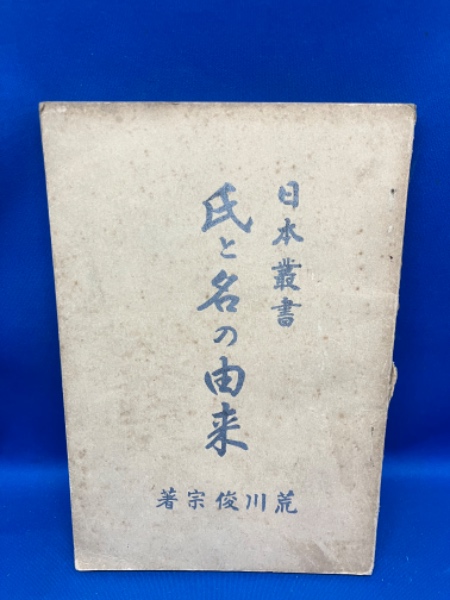 日本叢書
氏と名の由来
荒川俊宗著